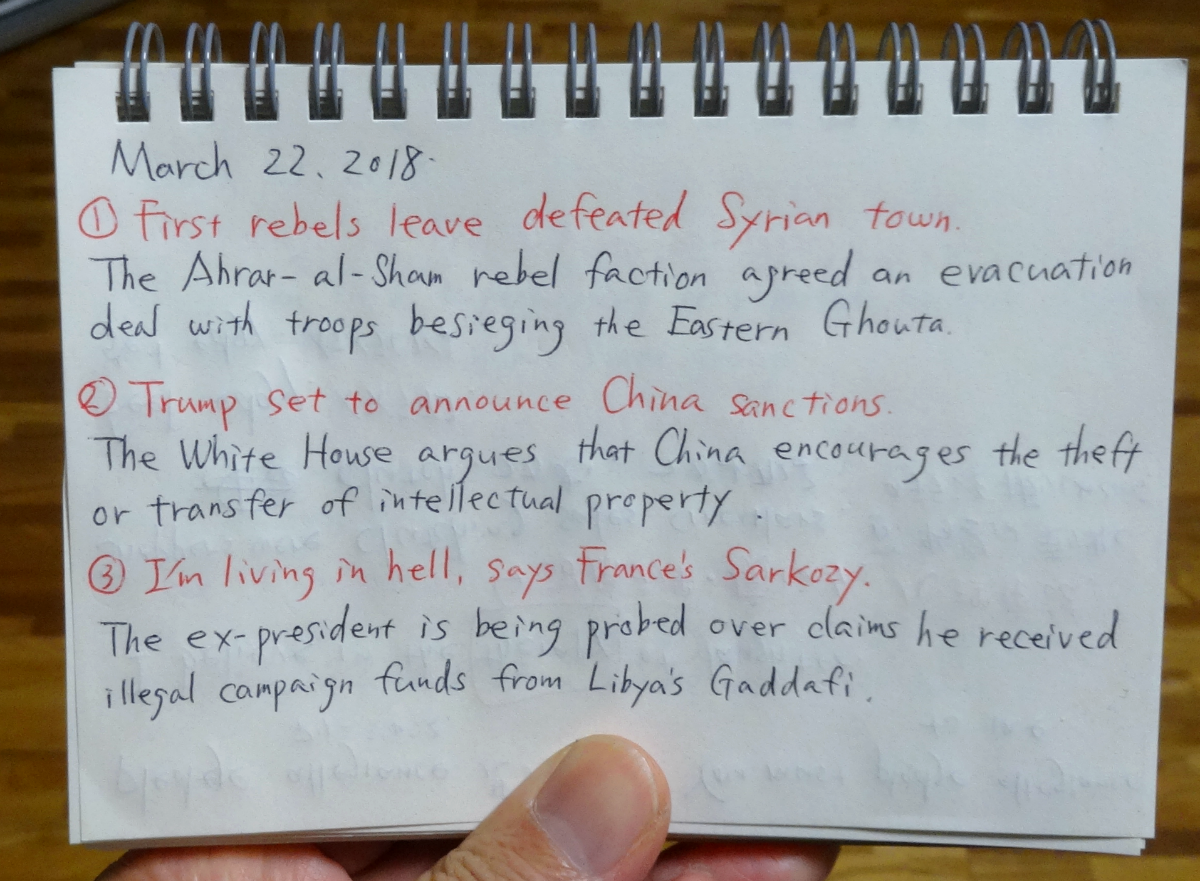 March 22. 2018.
① First rebels leave defeated Syrian town.
The Ahrar-al-Sham rebel faction agreed an evacuation
deal with troops besieging the Eastern Ghouta.
② Trump set to announce China sanctions.
The White House argues that China encourages the theft
or transfer of intellectual property.
③ I'm living in hell, says France's Sarkozy.
The ex-president is being probed over claims he received
illegal campaign funds from Libya's Gaddafi.